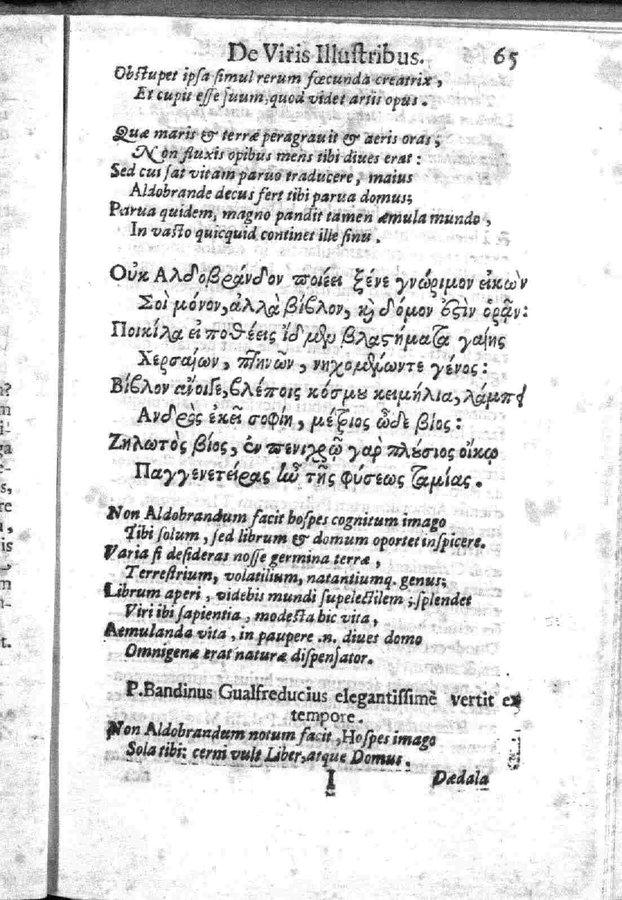 De Viris Illustribus. 65
Obstupet ipsa simul rerum fœcunda creatrix,
Et cupit esse suum, quod videt artis opus.
Quæ maris & terræ peragrauit & aeris oras;
Non fluxis opibus mens tibi diues erat:
Sed cui sat vitam paruo traducere, maius
Aldobrande decus fert tibi parua domus;
Parua quidem, magno pandit tamen æmula mundo,
In vasto quicquid continet ille sinu.
Οὐκ Αλδοβράνδον ποιέει ξένε γνώριμον εἰκὼν
Σοὶ μόνον, ἀλλὰ βίβλον, καὶ δόμον ὅςιν ὁρᾷν:
Ποικίλα εἰ ποθέεις ἴδμεν βλαςήματα γαίης
Χερσαίων, πτηνῶν, νηχομένωντε γένος:
Βίβλον ἄνοιγε, βλέποις κόσμου κειμήλια, λάμπει
Ανδρὸς ἐκεῖ σοφίη, μέτριος ὧδε βίος:
Ζηλωτὸς βίος, ἐν πενιχρῷ γαρ πλούσιος οἴκῳ
Παγγενετείρας ἰῶ τῆς φύσεως ταμίας.
Non Aldobrandum facit hospes cognitum imago
Tibi solum, sed librum & domum oportet inspicere.
Varia si desideras nosse germina terræ,
Terrestrium, volatilium, natantiumq. genus;
Librum aperi, videbis mundi supelectilem; splendet
Viri ibi sapientia, modesta hic vita,
Aemulanda vita, in paupere .n. diues domo
Omnigenæ erat naturæ dispensator.
P. Bandinus Gualfreducius elegantissimè vertit ex
tempore.
Non Aldobrandum notum facit, Hospes imago
Sola tibi: cerni vult Liber, atque Domus.
I Dædala